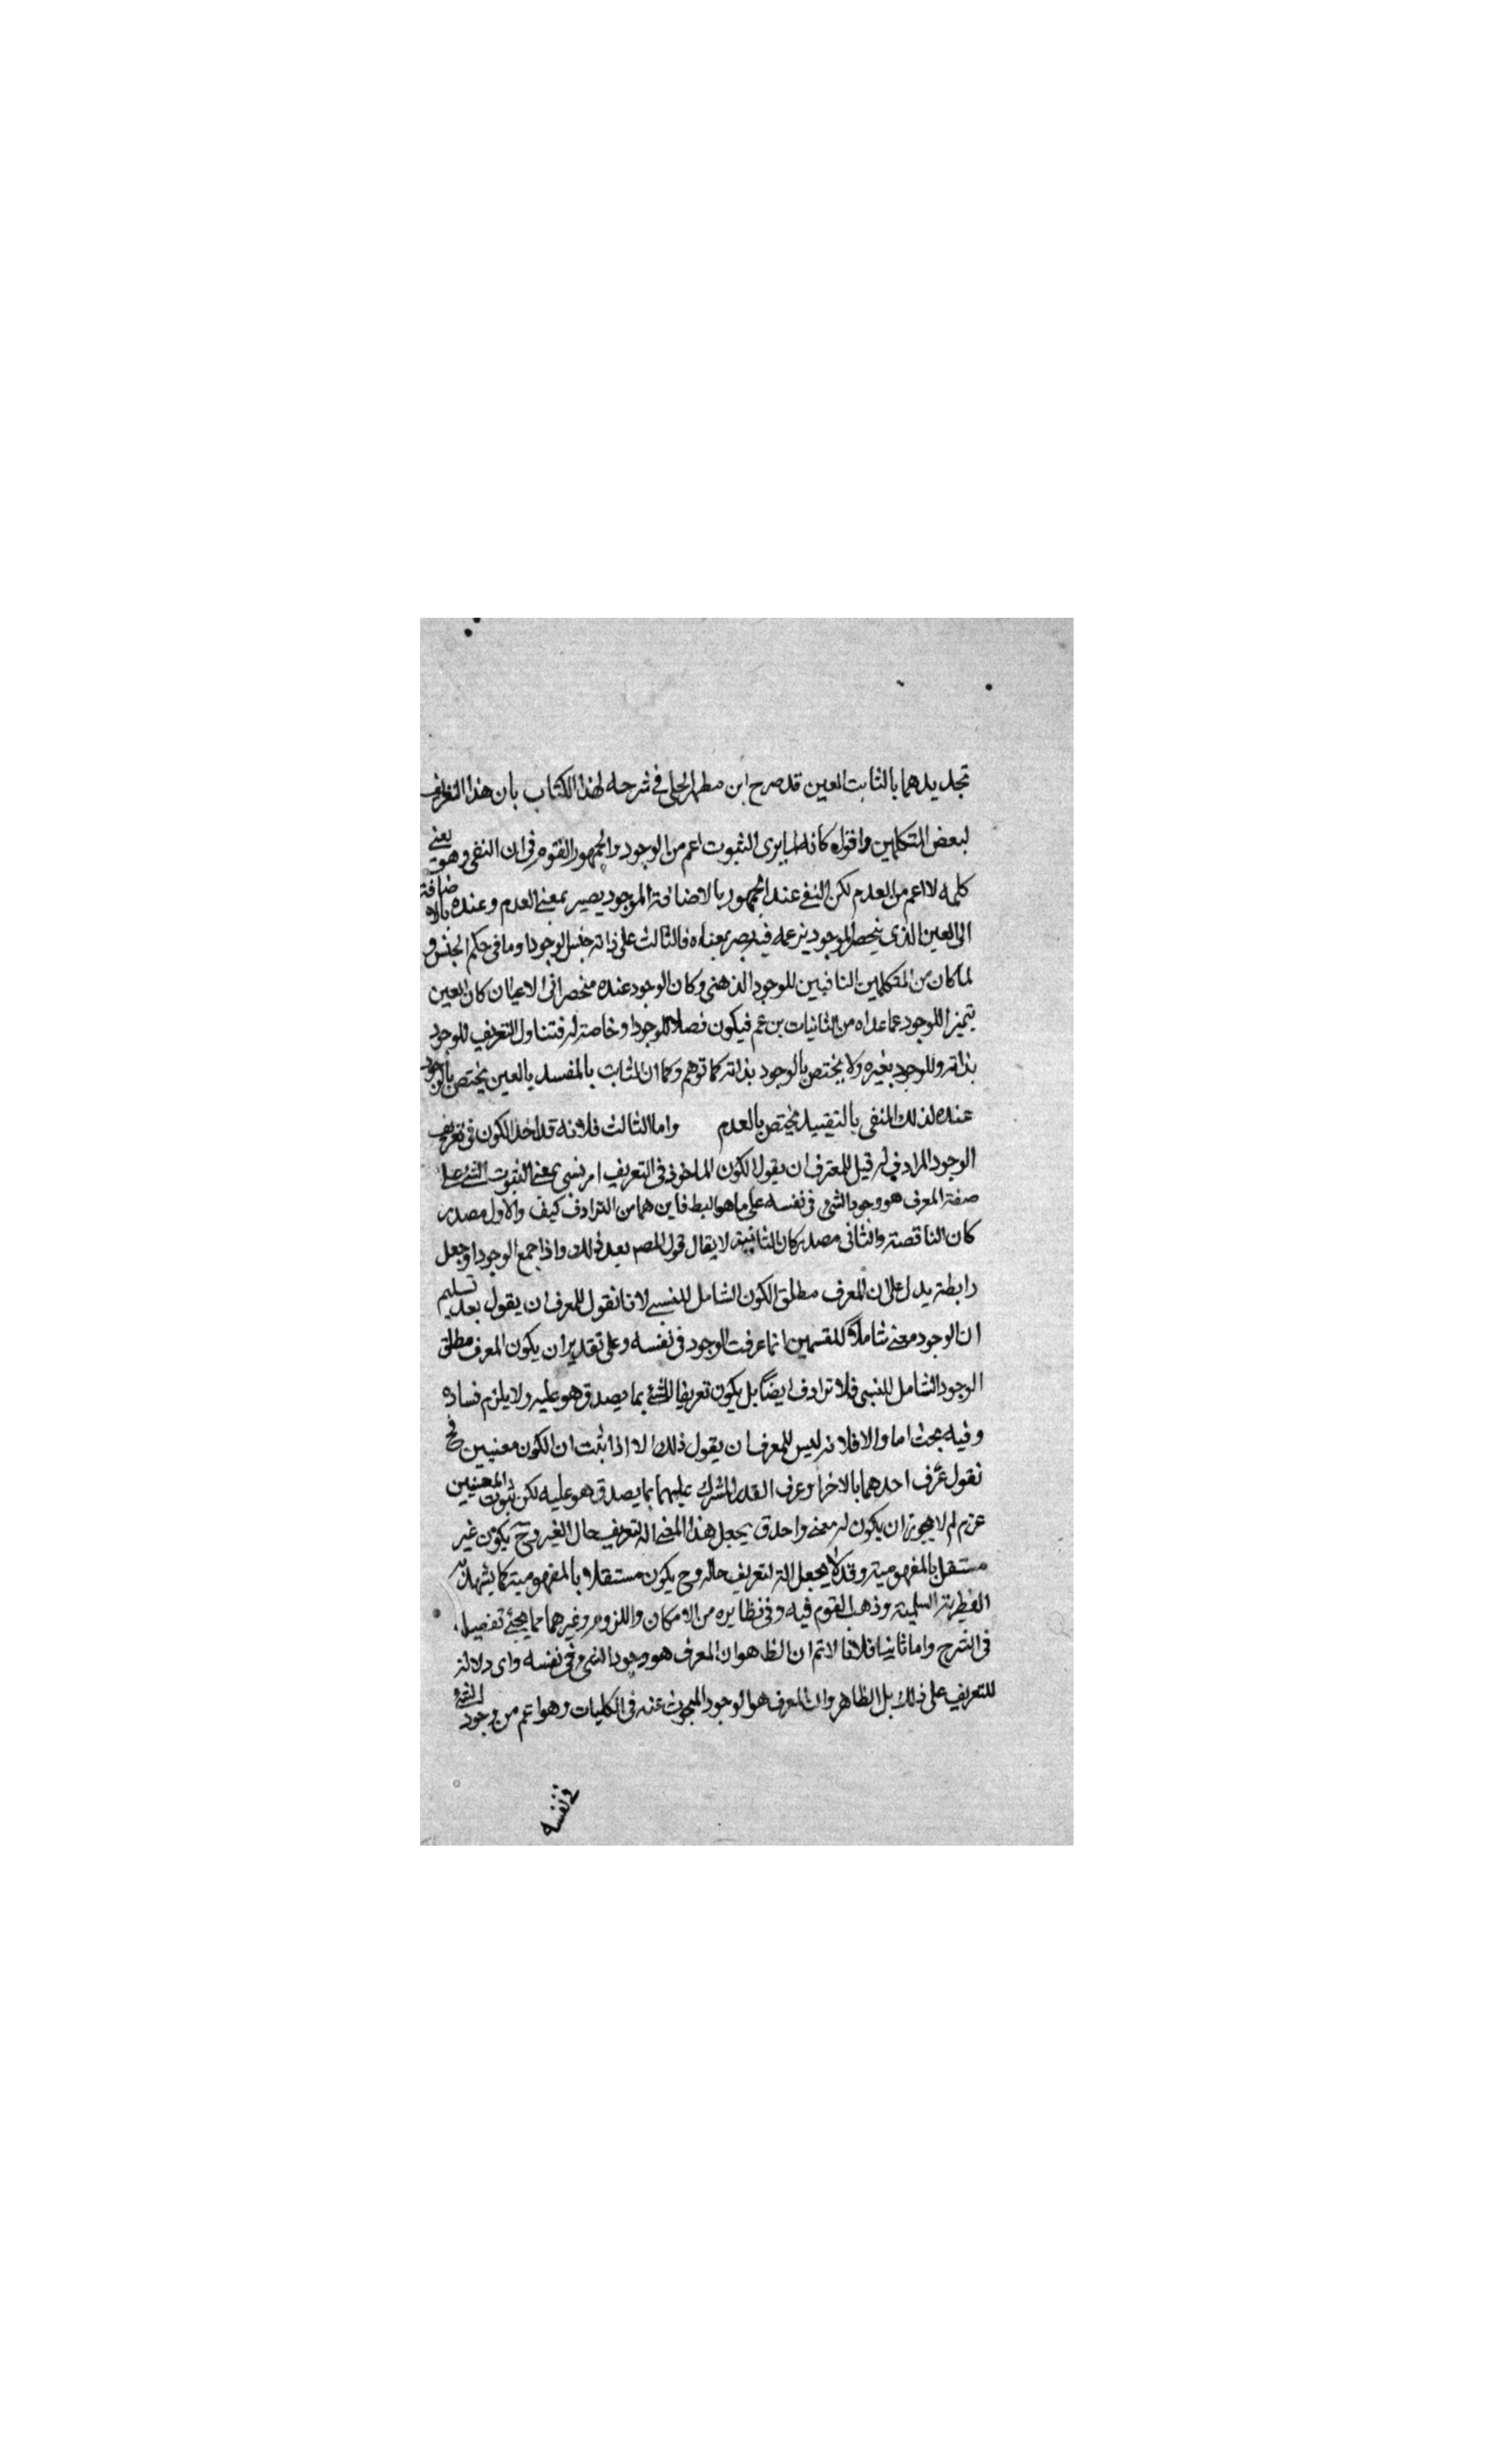 تحديدهما بالثابت العين قد صرح ابن مطهر الحلي في شرحه لهذا الكتاب بان هذا التعريف
لبعض المتكلمين واقول كانه لما يرى الثبوت اعم من الوجود والجمهور القوم في ان النفي وهو يعنى
كلمه لا اعم من العدم لكن النفي عند الجمهور بالاضافة الموجود يصير بمعنى العدم وعنده بالاضافة
الى العين الذى ينحصر الموجود بزعمه فيه يصير بمعناه فالثالث على ذاته جنس للوجود او ما في حكم الجنس و
لما كان من المتكلمين النافيين للوجود الذهنى وكان الوجود عنده منحصرا في الاعيان كان العين
تميز اللوجود عما عداه من الثانيات بزعم فيكون فصلا للوجود او خاصة له فتناول التعريف للوجود
بذاته وللوجود بغيره ولا يختص بالوجود بذاته كما توهم وكما ان الثابت بالمفسد بالعين يختص بالوجود
عنده لذلك المنفى بالتقييد يختص بالعدم واما الثالث فلانه قد اخذ الكون في تعريف
الوجود المرادف له قيل للمعترف ان يقول الكون الماخوذ في التعريف امر نسبى بمعنى الثبوت الشئ على
صفة المعرف هو وجود الشئ في نفسه على ما هو البط فاين هما من الترادف كيف والاول مصدر
كان الناقصة والثانى مصدر كان الثانية لا يقال قول المصم بعد ذلك واذا جمع الوجود او جعل
رابطة يدل على ان المعرف مطلق الكون الشامل للنسبى لانا نقول للمعرف ان يقول بعد تسليم
ان الوجود معنى شاملا للمقسمين انما عرفت الوجود في نفسه وعلى تقدير ان يكون المعرف مطلق
الوجود الشامل للنسبى فلا ترادف ايضا بل يكون تعريفا للشئ بما يصدق هو عليه ولا يلزم فساده
وفيه بحث اما والا فلانه ليس للمعرف ان يقول ذلك الا اذا ثبت ان الكون معنيين فح
نقول عرف احدهما بالاخر او عرف القدر المشترك عليهما بما يصدق هو عليه لكن ثبوت المعنيين
عزم لم لا يجوز ان يكون له معنى واحد ق يجعل هذا المعنى الة لتعريف حال الغير وح يكون غير
مستقل بالمفهومية وقد لا يجعل الة لتعريف حاله وح يكون مستقلا بالمفهومية كما يشهد به
الفطرة السليمة وذهب القوم فيه وفي نظايره من الامكان واللزوم وغيرهما مما يجئ تفصيله
في الشرح واما ثانيا فلانا لا تم ان الظ هو ان المعرف هو وجود الشئ في نفسه واى دلالة
للتعريف على ذلك بل الظاهر وان المعرف هو الوجود المبحوث عنه في الكليات وهو اعم من وجود الشئ
في نفسه